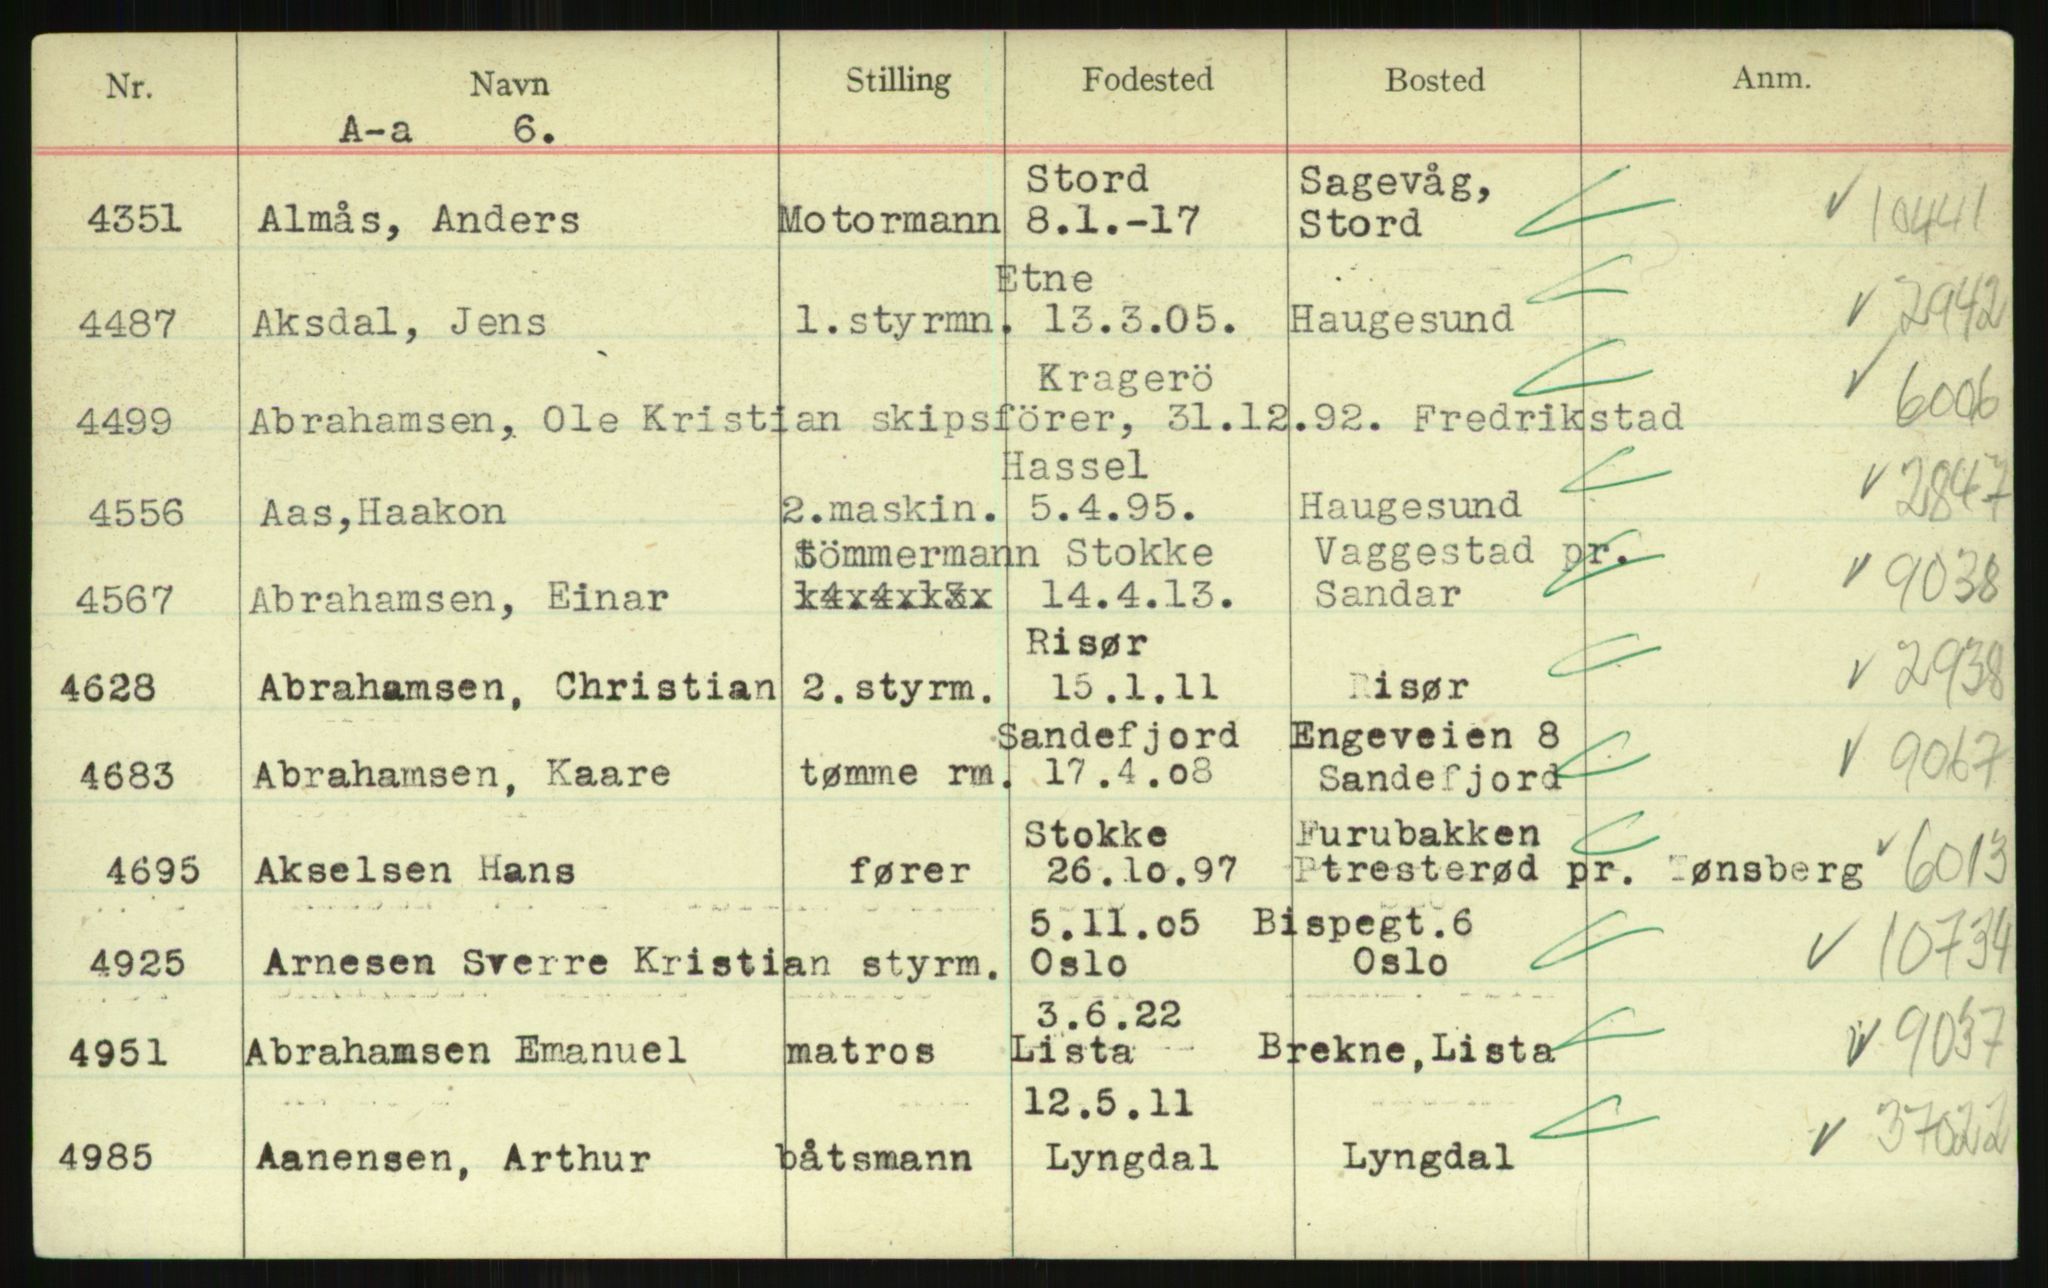 Nr. Navn Stilling Fodested Bosted Anm.
A-a 6.
Stord Sagevåg,
4351 Almås, Anders Motormann 8.1.-17 Stord 10441
Etne
4487 Aksdal, Jens 1.styrmn. 13.3.05. Haugesund 2942
Kragerö
4499 Abrahamsen, Ole Kristian skipsförer, 31.12.92. Fredrikstad 6006
Hassel
4556 Aas,Haakon 2.maskin. 5.4.95. Haugesund 2847
tömmermann Stokke Vaggestad pr.
4567 Abrahamsen, Einar 14.4.13. Sandar 9038
Risør
4628 Abrahamsen, Christian 2.styrm. 15.1.11 Risør 2938
Sandefjord Engeveien 8
4683 Abrahamsen, Kaare tømme rm. 17.4.o8 Sandefjord 9067
Stokke Furubakken
4695 Akselsen Hans fører 26.lo.97 Ptresterød pr. Tønsberg 6013
5.11.o5 Bispegt.6
4925 Arnesen Sverre Kristian styrm. Oslo Oslo 10734
3.6.22
4951 Abrahamsen Emanuel matros Lista Brekne,Lista 9037
12.5.11
4985 Aanensen, Arthur båtsmann Lyngdal Lyngdal 37022